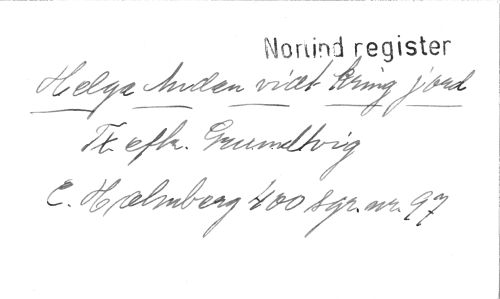 Norlind register
Helge Andan vidt kring jord
Tx. eftr. Grundtvig
E. Holmberg 400 sgr. nr. 97